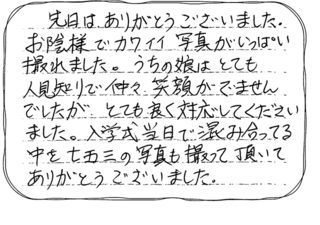 先日は、ありがとうございました。
お陰様でカワイイ写真がいっぱい
撮れました。うちの娘はとても
人見知りで仲々笑顔がでません
でしたが、とても良く対応してください
ました。入学式当日で混み合ってる
中を七五三の写真も撮って頂いて
ありがとうございました。